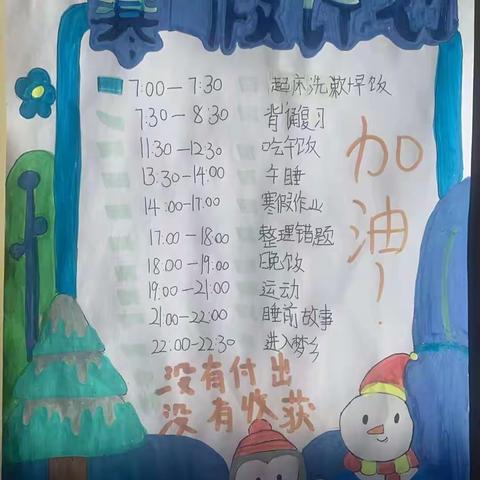 寒假计划
7:00—7:30 起床洗漱早饭
7:30—8:30 背诵复习
11:30—12:30 吃午饭
13:30—14:00 午睡
14:00—17:00 寒假作业
17:00—18:00 整理错题
18:00—19:00 晚饭
19:00—21:00 运动
21:00—22:00 睡前故事
22:00—22:30 进入梦乡
加油!
没有付出
没有收获